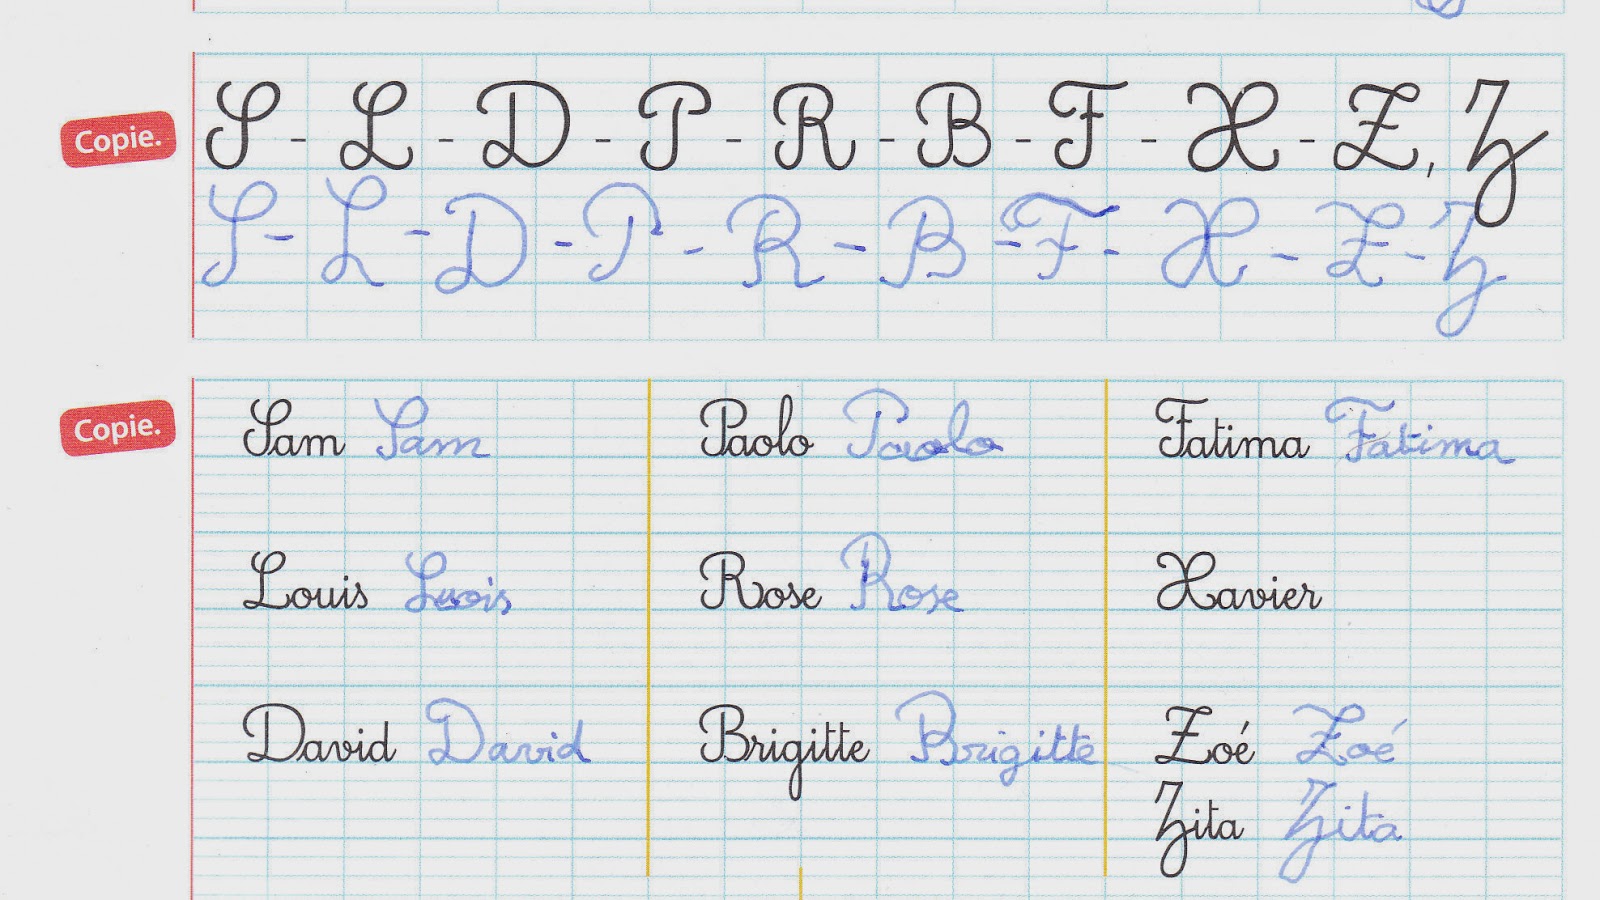 Copie. S - L - D - P - R - B - F - X - Z, Z
S - L - D - P - R - B - F - X - Z - Z
Copie. Sam Sam Paolo Paolo Fatima Fatima
Louis Louis Rose Rose Xavier
David David Brigitte Brigitte Zoé Zoé
Zita Zita